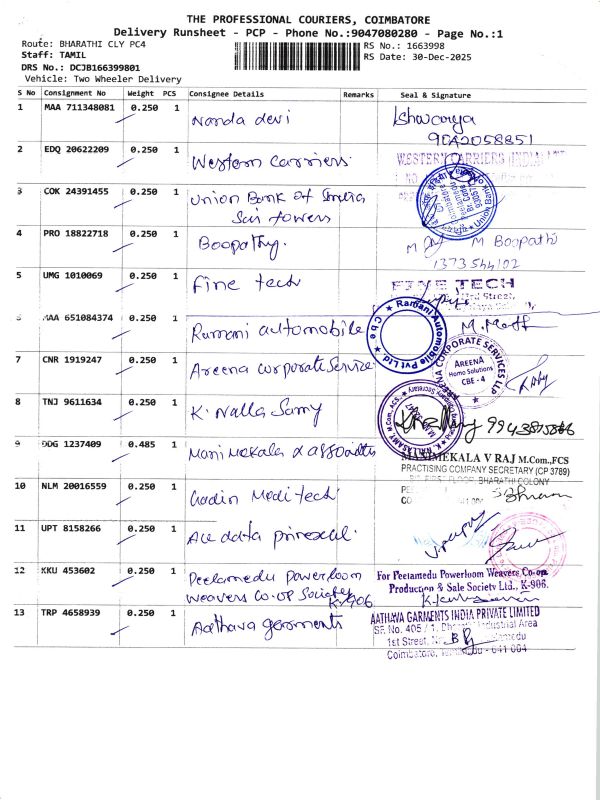 THE PROFESSIONAL COURIERS, COIMBATORE
Delivery Runsheet - PCP - Phone No.:9047080280 - Page No.:1
Route: BHARATHI CLY PC4
RS No.: 1663998
Staff: TAMIL
RS Date: 30-Dec-2025
DRS No.: DCJB166399801
Vehicle: Two Wheeler Delivery
S No Consignment No Weight PCS Consignee Details Remarks Seal & Signature
1 MAA 711348081 0.250 1 Nanda devi
2 EDQ 20622209 0.250 1 Western carriers.
WESTERN CARRIERS (INDIA)
3 COK 24391455 0.250 1 Union Bank of India
Sai towers
4 PRO 18822718 0.250 1 Boopathy.
M Boopathi
5 UMG 1010069 0.250 1 Fine tech
FINE TECH
3rd Street,
6 MAA 651084374 0.250 1 Ramani automobile
Ramani Automobile Pvt Ltd.
Cbe
7 CNR 1919247 0.250 1 Areena corporate Service
AREENA CORPORATE SERVICES LLP
AREENA
Home Solutions
CBE - 4
8 TNJ 9611634 0.250 1 K. Nalla Samy
9 DDG 1237409 0.485 1 Mani Mekala & associates
MANIMEKALA V RAJ M.Com.,FCS
PRACTISING COMPANY SECRETARY (CP 3769)
FIRST FLOOR, BHARATHI COLONY
10 NLM 20016559 0.250 1 Medi tech
11 UPT 8158266 0.250 1 Ace data
12 KKU 453602 0.250 1 Peelamedu powerloom
weavers Co-op Society
K-906
For Peelamedu Powerloom Weavers Co-op
Production & Sale Society Ltd., K-906.
13 TRP 4658939 0.250 1 Aathava garments
AATHAVA GARMENTS INDIA PRIVATE LIMITED
SF. No. 405 / 1, Industrial Area
1st Street,
Coimbatore, - 641 004